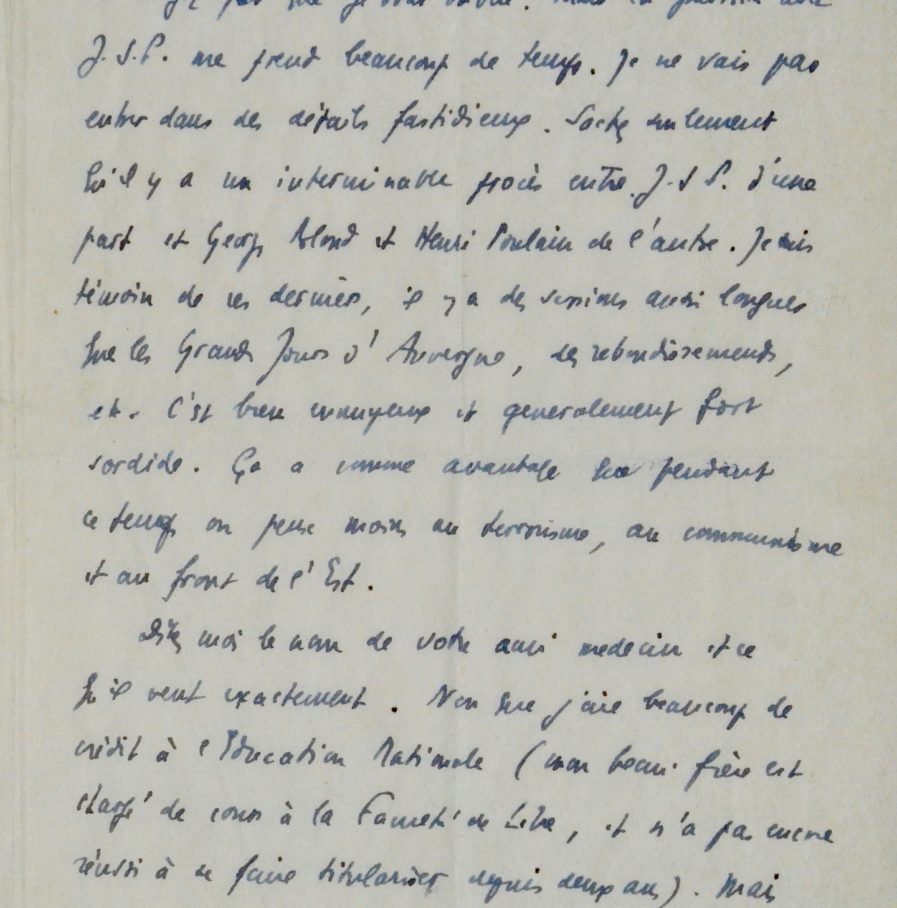 J.S.P. me prend beaucoup de temps. Je ne vais pas
entrer dans des détails fastidieux. Sachez seulement
qu'il y a un interminable procès entre J.S.P. d'une
part et Georges Blond et Henri Poulain de l'autre. Je suis
témoin de ces derniers, il y a des sessions aussi longues
que les Grands Jours d'Auvergne, des rebondissements,
etc. C'est bien ennuyeux et généralement fort
sordide. Ça a comme avantage que pendant
ce temps on pense moins au terrorisme, au communisme
et au front de l'Est.
Dites moi le nom de votre ami médecin et ce
qu'il veut exactement. Non que j'aie beaucoup de
crédit à l'Education Nationale (mon beau-frère est
chargé de cours à la Faculté de Lille, et n'a pas encore
réussi à se faire titulariser depuis deux ans). Mais